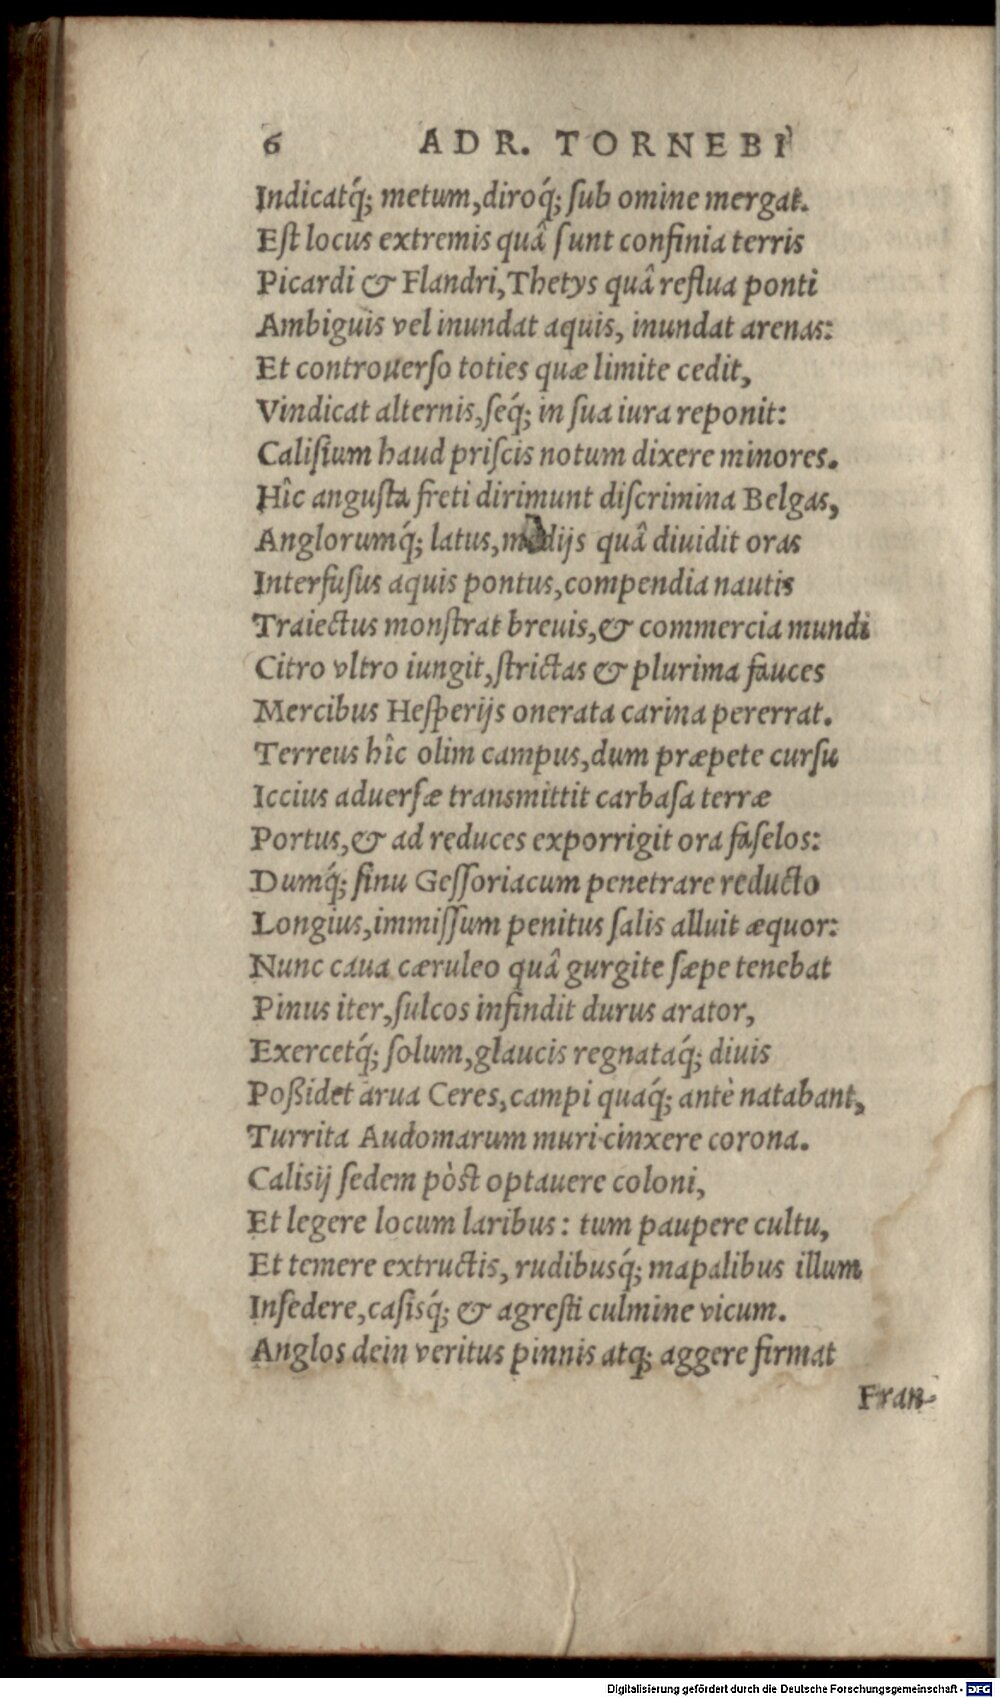 6 ADR. TORNEBI
Indicatq́; metum, diroq́; ſub omine mergat.
Eſt locus extremis quâ ſunt confinia terris
Picardi & Flandri, Thetys quâ reflua ponti
Ambiguis vel inundat aquis, inundat arenas:
Et controuerſo toties quæ limite cedit,
Vindicat alternis, ſeq́; in ſua iura reponit:
Caliſium haud priſcis notum dixere minores.
Hîc anguſta freti dirimunt diſcrimina Belgas,
Anglorumq́; latus, medijs quâ diuidit oras
Interfuſus aquis pontus, compendia nautis
Traiectus monſtrat breuis, & commercia mundi
Citro vltro iungit, ſtrictas & plurima fauces
Mercibus Heſperijs onerata carina pererrat.
Terreus hîc olim campus, dum præpete curſu
Iccius aduerſæ transmittit carbaſa terræ
Portus, & ad reduces exporrigit ora faſelos:
Dumq́; ſinu Geſſoriacum penetrare reducto
Longius, immiſſum penitus ſalis alluit æquor:
Nunc caua cæruleo quâ gurgite ſæpe tenebat
Pinus iter, ſulcos infindit durus arator,
Exercetq́; ſolum, glaucis regnataq́; diuis
Poßidet arua Ceres, campi quaq́; antè natabant,
Turrita Audomarum muri cinxere corona.
Calisij ſedem pòſt optauere coloni,
Et legere locum laribus: tum paupere cultu,
Et temere extructis, rudibusq́; mapalibus illum
Inſedere, caſisq́; & agreſti culmine vicum.
Anglos dein veritus pinnis atq; aggere firmat
Fran-
Digitalisierung gefördert durch die Deutsche Forschungsgemeinschaft - DFG